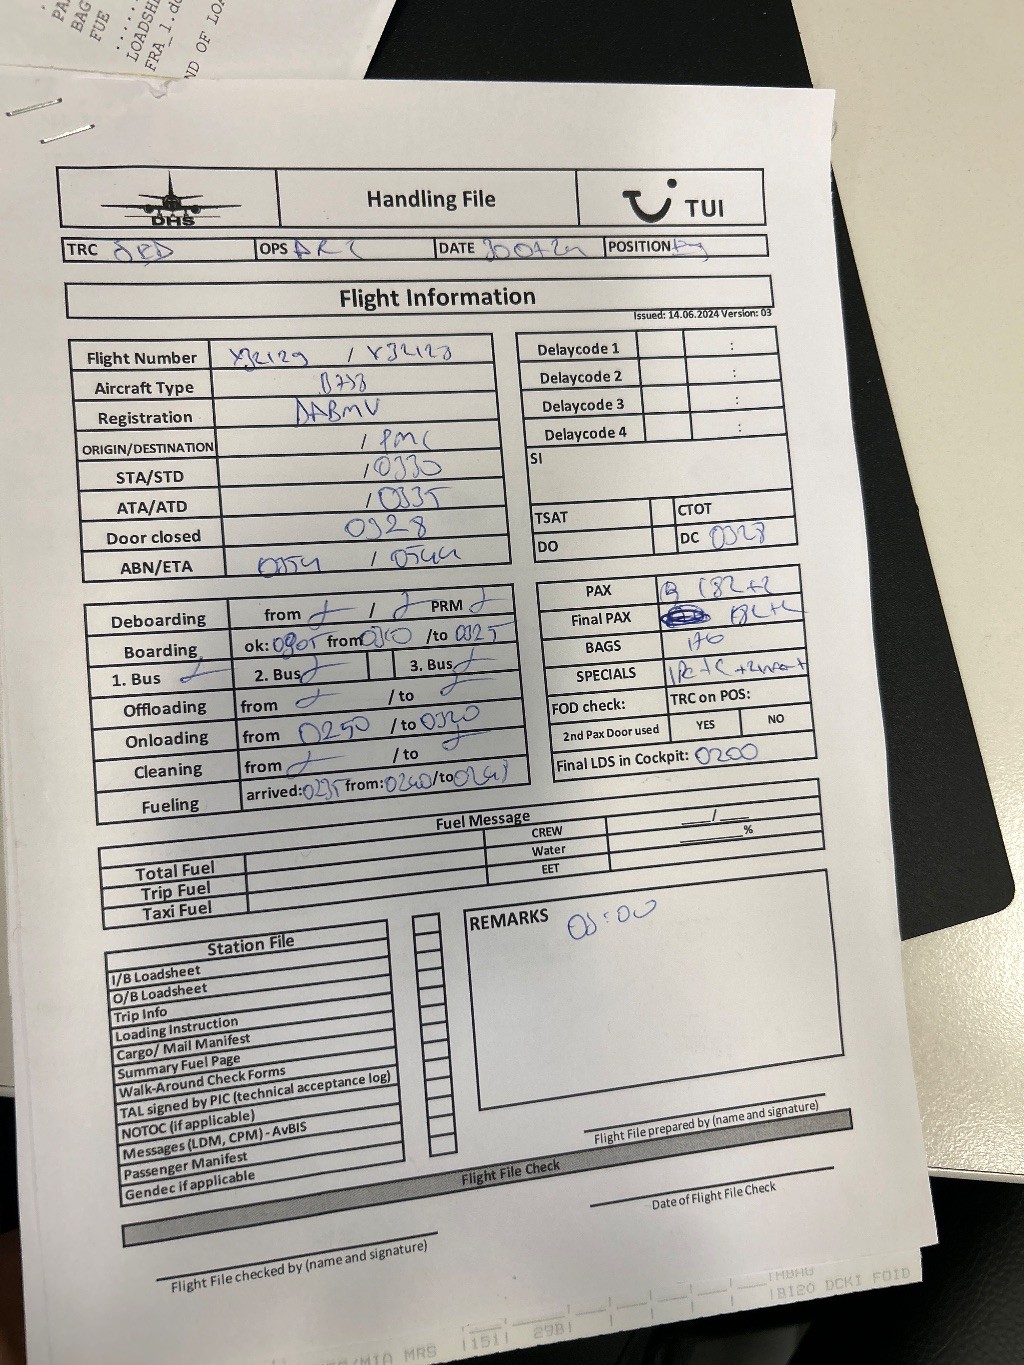 FUE
BAG
LOADSH
FRA_1.d
ND OF LOA
DHS
Handling File
TUI
TRC OPS DATE POSITION
Flight Information
Issued: 14.06.2024 Version: 03
Flight Number X32129 / X32128
Aircraft Type B738
Registration DABMV
ORIGIN/DESTINATION / PMC
STA/STD / 0330
ATA/ATD / 0335
Door closed 0328
ABN/ETA 0354 / 0544
Delaycode 1 :
Delaycode 2 :
Delaycode 3 :
Delaycode 4 :
SI
TSAT CTOT
DO DC 0328
Deboarding from / PRM
Boarding ok: 0305 from 0310 /to 0325
1. Bus 2. Bus 3. Bus
Offloading from /to
Onloading from 0250 /to 0320
Cleaning from /to
Fueling arrived: 0235 from: 0240 /to
PAX 182+2
Final PAX 182+2
BAGS 176
SPECIALS
FOD check: TRC on POS:
2nd Pax Door used YES NO
Final LDS in Cockpit: 0200
Fuel Message
Total Fuel CREW ___/___
Trip Fuel Water ______%
Taxi Fuel EET
Station File
I/B Loadsheet
O/B Loadsheet
Trip Info
Loading Instruction
Cargo/ Mail Manifest
Summary Fuel Page
Walk-Around Check Forms
TAL signed by PIC (technical acceptance log)
NOTOC (if applicable)
Messages (LDM, CPM) - AvBIS
Passenger Manifest
Gendec if applicable
REMARKS
Flight File prepared by (name and signature)
Flight File Check
Date of Flight File Check
Flight File checked by (name and signature)
MIA MRS 151 29B
B120 DCKI FOID